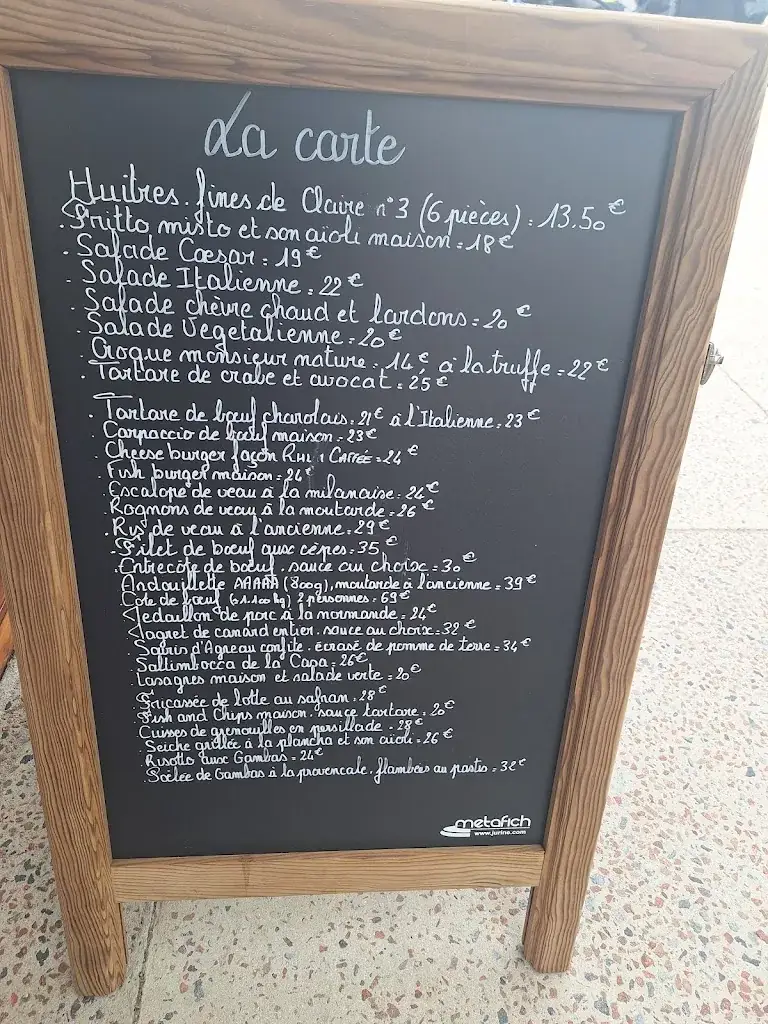 La carte
Huitres. fines de Claire n°3 (6 pièces) : 13.50€
. Fritto misto et son aïoli maison = 18€
. Salade Caesar : 19€
. Salade Italienne : 22€
. Salade chèvre chaud et lardons = 20€
. Salade Vegetalienne = 20€
. Croque monsieur nature : 14€, à la truffe = 22€
. Tartare de crabe et avocat = 25€
. Tartare de bœuf charolais = 21€ à l'Italienne = 23€
. Carpaccio de bœuf maison = 23€
. Cheese burger façon = 24€
. Fish burger maison = 24€
. Escalope de veau à la milanaise = 26€
. Rognons de veau à la moutarde = 26€
. Ris de veau à l'ancienne = 29€
. Filet de bœuf aux cèpes = 35€
. Entrecôte de bœuf . sauce au choix = 30€
. Andouillette AAAAA (800g), moutarde à l'ancienne = 39€
. Côte de bœuf (1.100kg) 2 personnes = 69€
. Medaillon de porc à la normande = 24€
. Magret de canard entier. sauce au choix = 32€
. Souris d'Agneau confite . écrasé de pomme de terre = 34€
. Saltimbocca de la Casa = 26€
. Lasagnes maison et salade verte = 20€
. Fricassée de lotte au safran = 28€
. Fish and Chips maison. sauce tartare = 20€
. Cuisses de grenouilles en persillade = 28€
. Seiche grillée à la plancha et son aïoli = 26€
. Risotto aux Gambas = 24€
. Poêlée de Gambas à la provencale, flambées au pastis = 32€
metafich
www.jurine.com